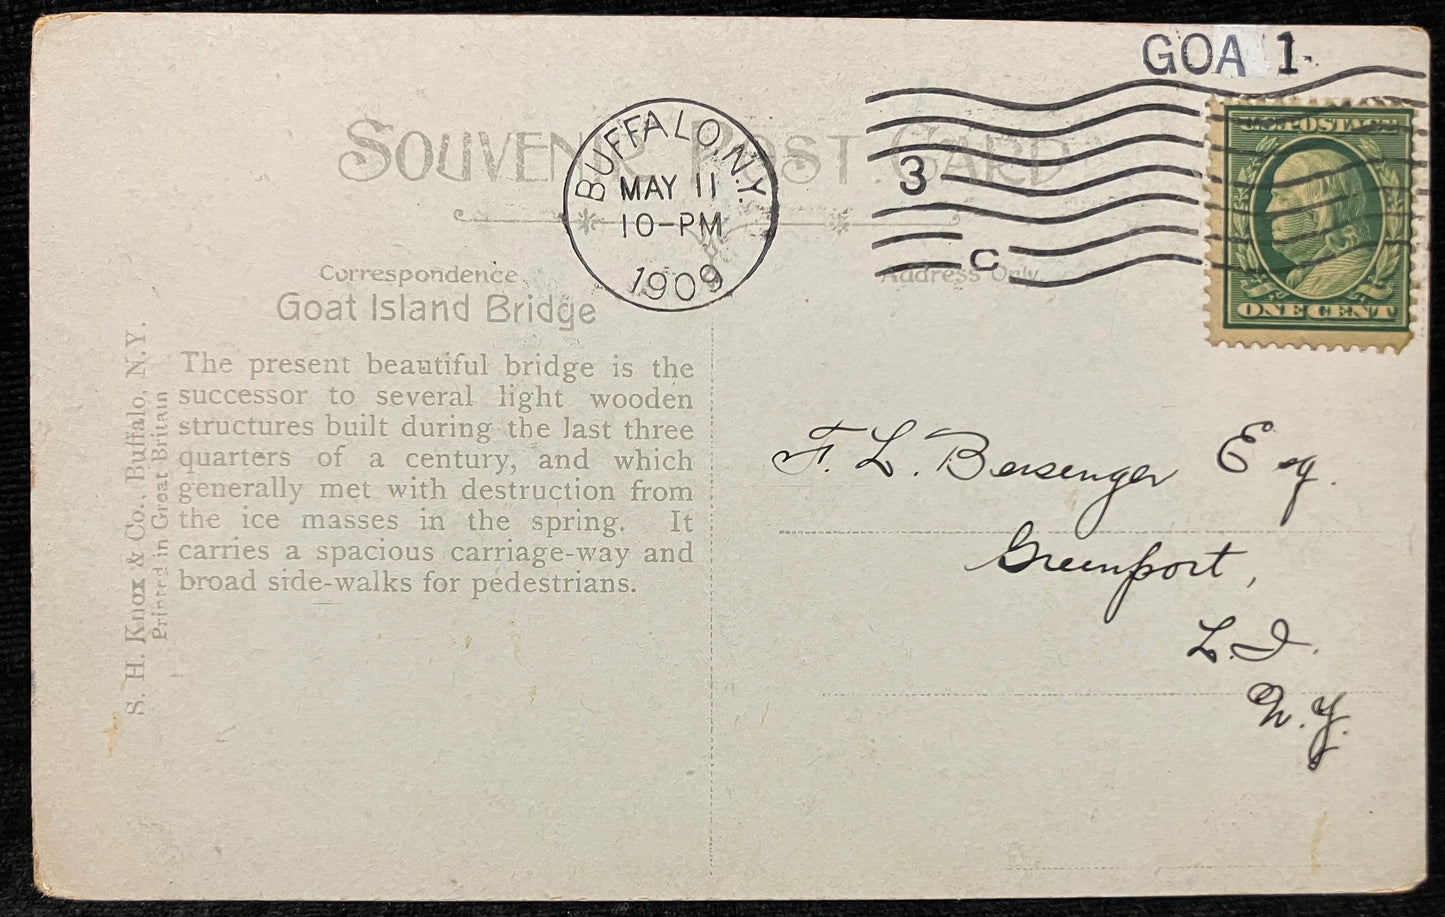 GOA 1
SOUVENIR POST CARD
BUFFALO, N.Y.
MAY 11
10-PM
1909
3
C
U.S. POSTAGE
ONE CENT
Correspondence
Address Only
Goat Island Bridge
The present beautiful bridge is the
successor to several light wooden
structures built during the last three
quarters of a century, and which
generally met with destruction from
the ice masses in the spring. It
carries a spacious carriage-way and
broad side-walks for pedestrians.
S. H. Knox & Co., Buffalo, N.Y.
Printed in Great Britain
F. L. Bersenger Esq.
Greenport,
L.I.
N.Y.